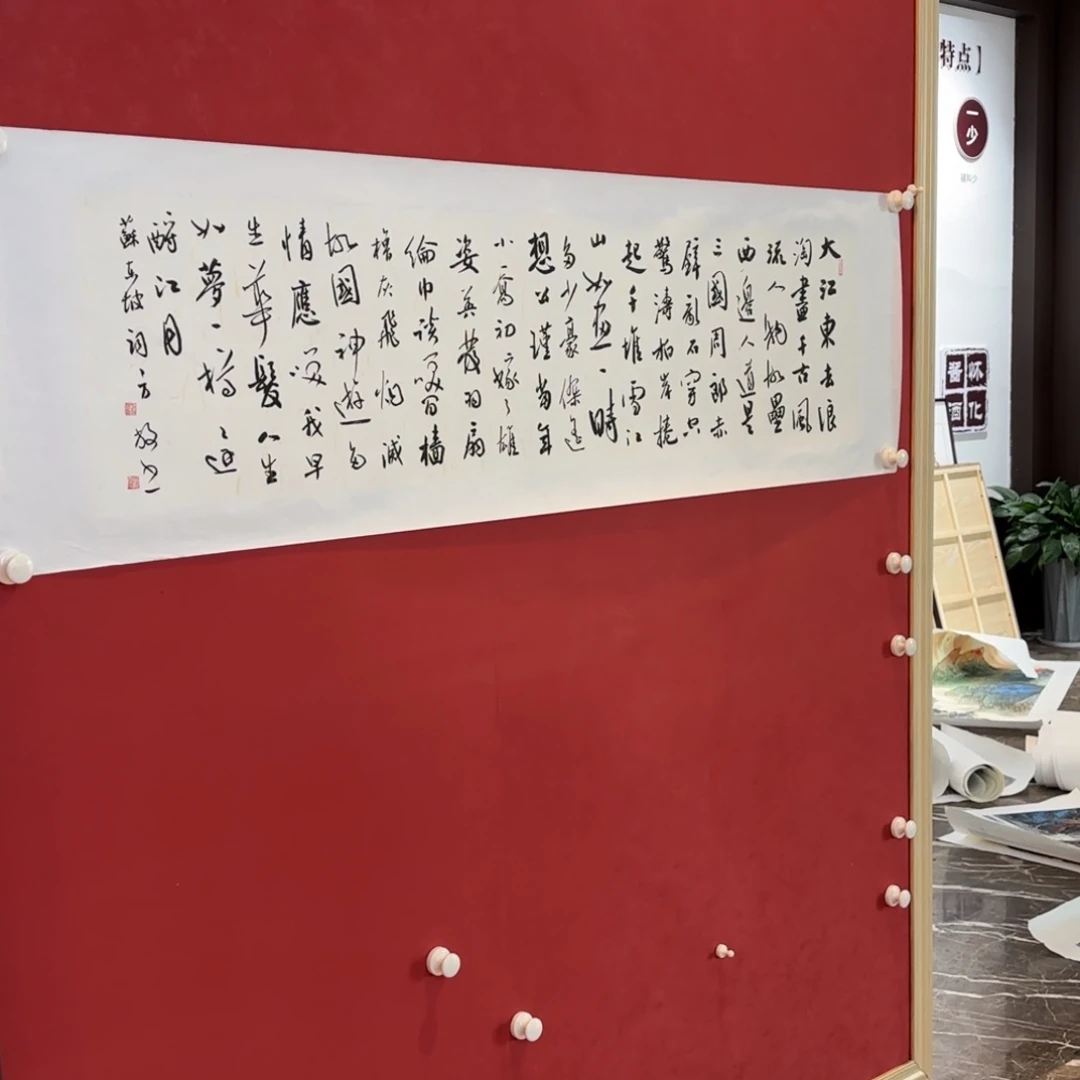 大江東去浪
淘盡千古風
流人物故壘
西邊人道是
三國周郎赤
壁亂石穿空
驚濤拍岸捲
起千堆雪江
山如畫一時
多少豪傑遥
想公瑾當年
小喬初嫁了雄
姿英發羽扇
綸巾談笑間檣
櫓灰飛烟滅
故國神遊多
情應笑我早
生華髮人生
如夢一樽還
酹江月
蘇東坡詞方
特点】
一少